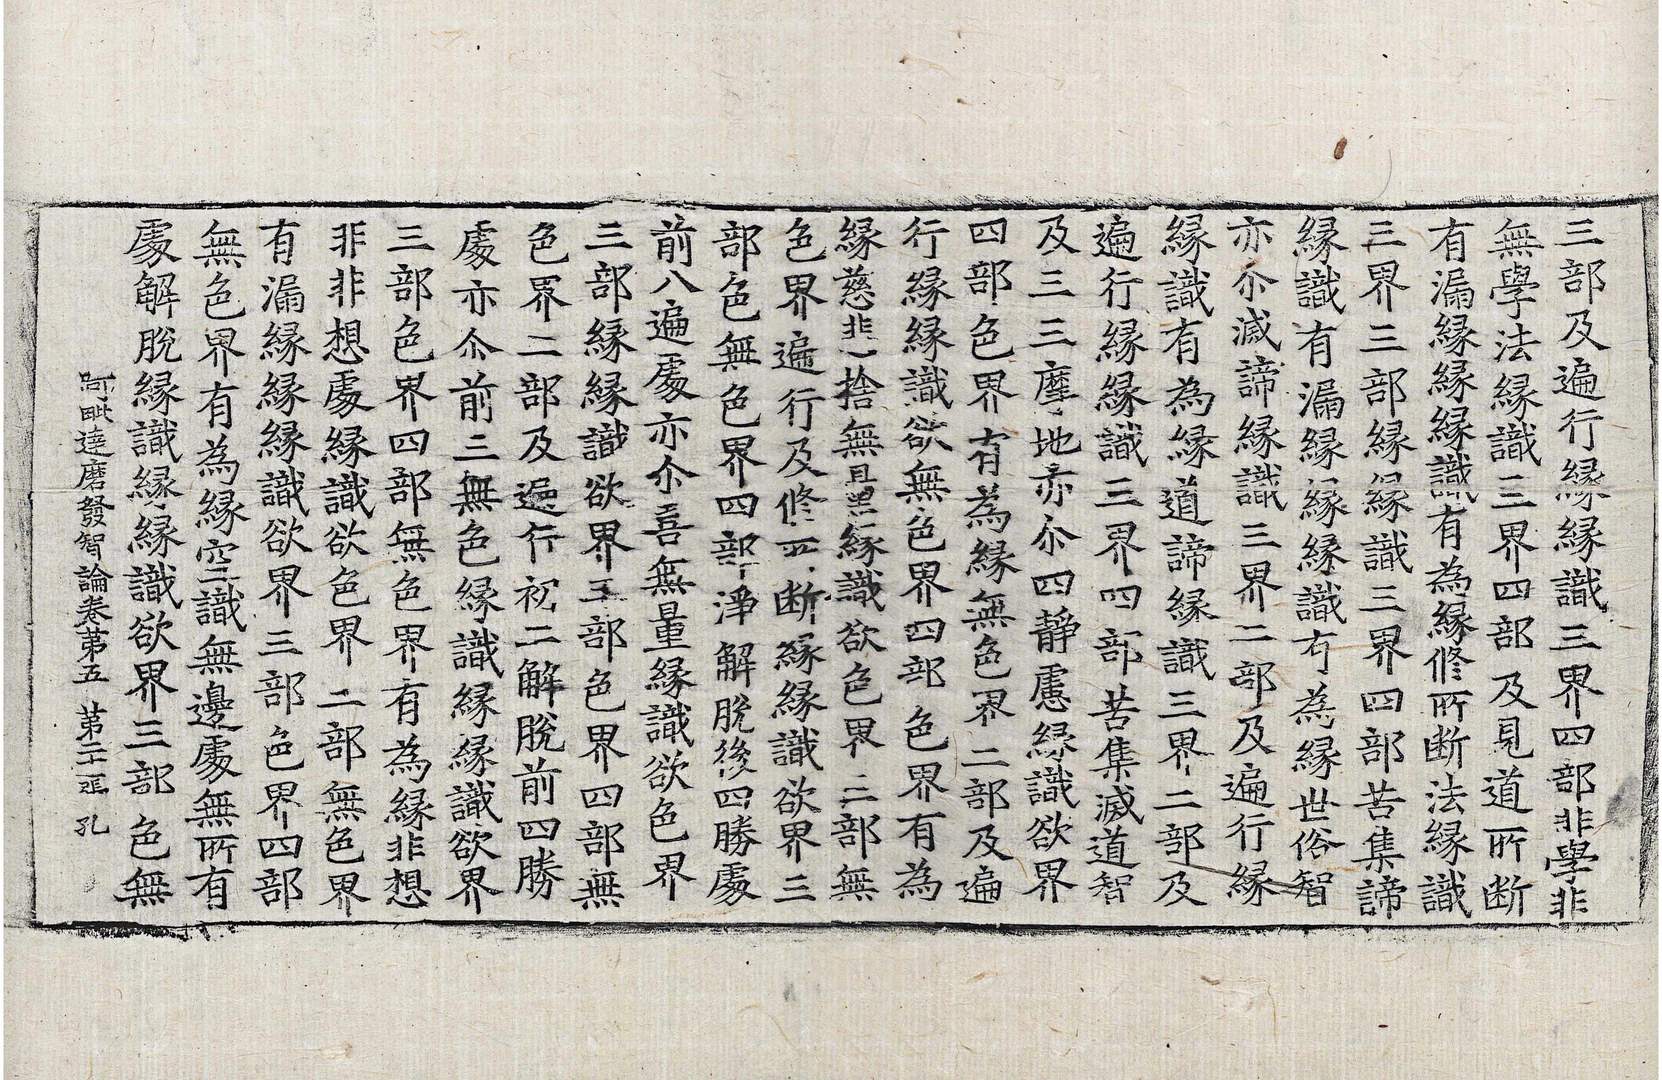 三部及遍行緣緣識三界四部非學非
無學法緣識三界四部及見道所斷
有漏緣緣緣識有為緣修所斷法緣識
三界三部緣緣識三界四部苦集諦
緣識有漏緣緣緣識有為緣世俗智
亦尒滅諦緣識三界二部及遍行緣
緣識有為緣道諦緣識三界二部及
遍行緣緣識三界四部苦集滅道智
及三三摩地亦尒四靜慮緣識欲界
四部色界有為緣無色界二部及遍
行緣緣識欲無色界四部色界有為
緣慈悲捨無量緣識欲色界三部無
色界遍行及修所斷緣緣識欲界三
部色無色界四部淨解脫後四勝處
前八遍處亦尒喜無量緣識欲色界
三部緣緣識欲界三部色界四部無
色界二部及遍行初二解脫前四勝
處亦尒前三無色緣識緣緣識欲界
三部色界四部無色界有為緣非想
非非想處緣識欲色界二部無色界
有漏緣緣緣識欲界三部色界四部
無色界有為緣空識無邊處無所有
處解脫緣識緣緣識欲界三部色無
阿毗達磨發智論卷第五 第二十張 孔